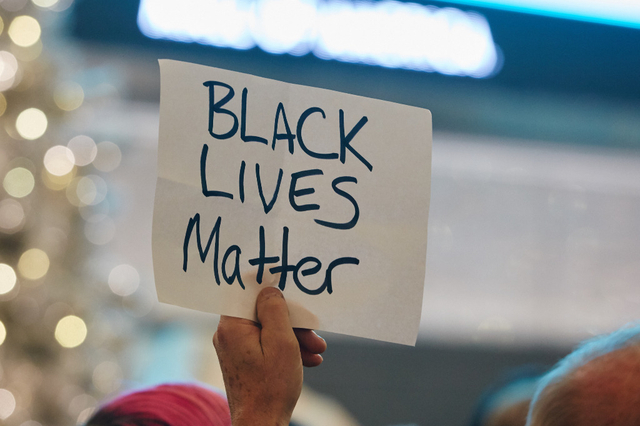 BLACK
LIVES
Matter